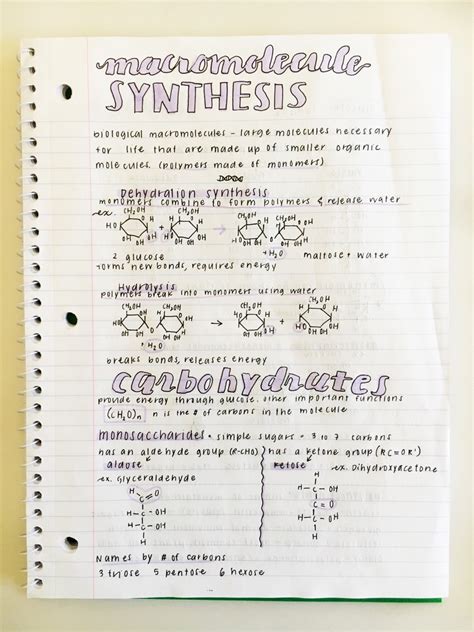 macromolecule
SYNTHESIS
biological macromolecules - large molecules necessary
for life that are made up of smaller organic
molecules. (polymers made of monomers)
Dehydration synthesis
monomers combine to form polymers & release water
ex.
2 glucose +H₂O maltose + water
forms new bonds, requires energy
Hydrolysis
polymers break into monomers using water
+ H₂O
breaks bonds, releases energy
carbohydrates
provide energy through glucose. other important functions
(CH₂O)n n is the # of carbons in the molecule
monosaccharides - simple sugars - 3 to 7 carbons
has an aldehyde group (R-CHO) has a ketone group (RC=OR')
aldose ketose ex. Dihydroxyacetone
ex. Glyceraldehyde
Names by # of carbons
3 triose 5 pentose 6 hexose